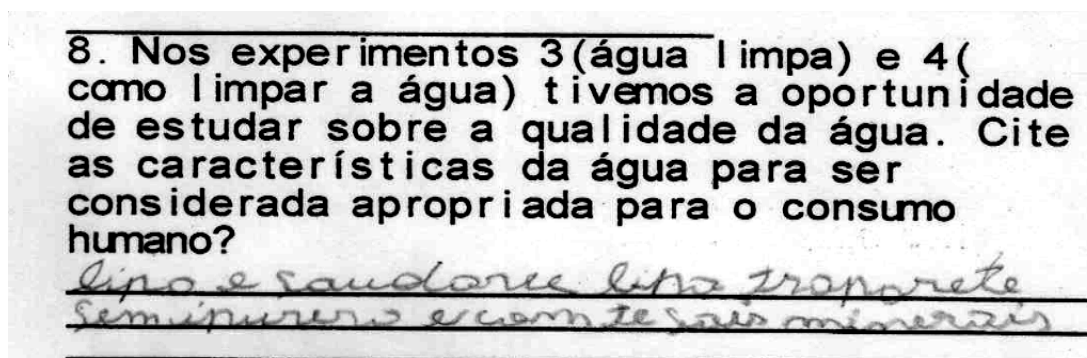 8. Nos experimentos 3(água limpa) e 4(
como limpar a água) tivemos a oportunidade
de estudar sobre a qualidade da água. Cite
as características da água para ser
considerada apropriada para o consumo
humano?
lipa e saudavee lipa traparete
semipurero e com te sais minerais